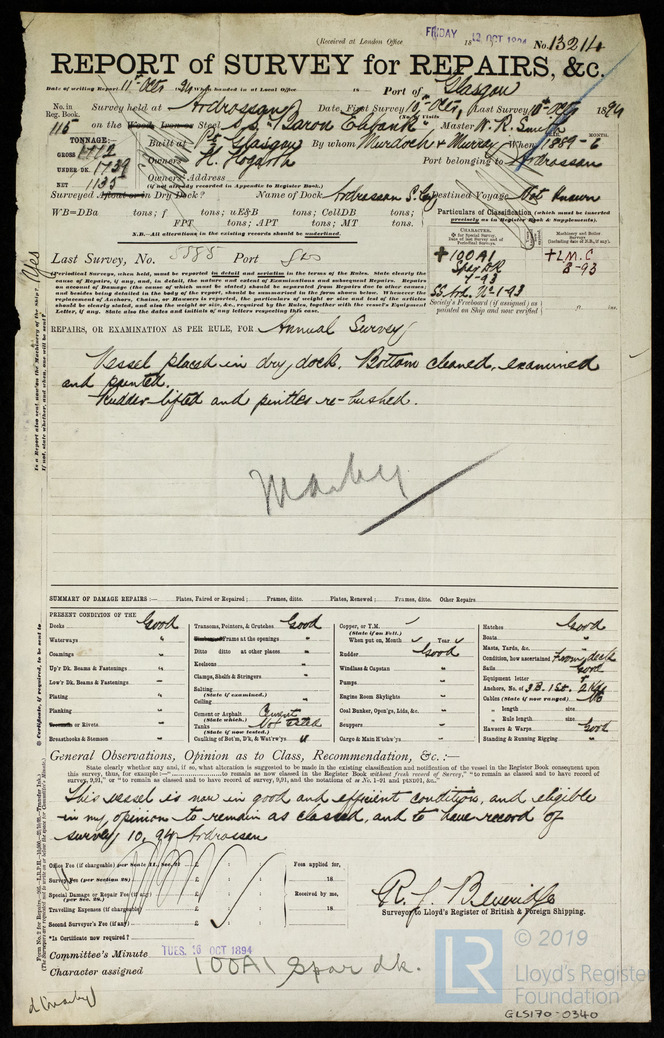 (Received at London Office
FRIDAY 12 OCT 1894
No. 13214
REPORT of SURVEY for REPAIRS, &c.
Date of writing Report 11th Octr 1894 When handed in at Local Office 18 Port of Glasgow
No. in Reg. Book. Survey held at Ardrossan Date, First Survey 10th Octr, Last Survey 10th Octr 1894
115 on the Wood, Iron or Steel S.S. "Baron Elibank" Master W. R. Smith
TONNAGE:
GROSS 1772
UNDER DK. 1739
NET 1135
Built at Pt Glasgow By whom Murdoch & Murray When 1889-6
Owners H. Hogarth Port belonging to Ardrossan
Owners' Address
(if not already recorded in Appendix to Register Book.)
Surveyed Afloat or in Dry Dock? Name of Dock Ardrossan S. Coy Destined Voyage Not Known
WB=DBa tons; f tons; uE&B tons; CellDB tons;
FPT tons; APT tons; MT tons.
N.B.—All alterations in the existing records should be underlined.
Particulars of Classification (which must be inserted precisely as in Register Book & Supplements).
+100A1
Spar DK
7-93
SS Ard. No 1-93
+L.M.C
8-93
Society's Freeboard (if assigned) as painted on Ship and now verified
ft. ins.
Last Survey, No. 5885 Port Gls
Periodical Surveys, when held, must be reported in detail and seriatim in the terms of the Rules. State clearly the cause of Repairs, if any, and, in detail, the nature and extent of Examinations and subsequent Repairs. Repairs on account of Damage (the cause of which must be stated) should be separated from Repairs due to other causes; and besides being detailed in the body of the report, should be summarised in the form shown below. Whenever the replacement of Anchors, Chains, or Hawsers is reported, the particulars of weight or size and test of the articles should be clearly stated, and also the weight or size, &c., required by the Rules, together with the vessel's Equipment Letter, if any. State also the dates and initials of any letters respecting this case.
REPAIRS, OR EXAMINATION AS PER RULE, FOR Annual Survey
Vessel placed in dry dock. Bottom cleaned, examined
and painted.
Rudder lifted and pintles re-bushed.
SUMMARY OF DAMAGE REPAIRS :— Plates, Faired or Repaired; Frames, ditto. Plates, Renewed; Frames, ditto. Other Repairs
PRESENT CONDITION OF THE
Decks Good
Waterways "
Coamings "
Up'r Dk. Beams & Fastenings "
Low'r Dk. Beams & Fastenings "
Plating "
Planking
Treenails or Rivets "
Breasthooks & Stemson "
Transoms, Pointers, & Crutches Good
Frame at the openings "
Ditto ditto at other places "
Keelsons "
Clamps, Shelfs & Stringers "
Salting (State if examined.)
Ceiling "
Cement or Asphalt (State which.) Cement
Tanks (State if now tested.) Not tested
Caulking of Bot'm, D'k, & Wat'rw'ys "
Copper, or Y.M. (State if on Felt.)
When put on, Month Year
Rudder Good
Windlass & Capstan "
Pumps "
Engine Room Skylights "
Coal Bunker, Open'gs, Lids, &c. "
Scuppers "
Cargo & Main H'tchw'ys "
Hatches Good
Boats "
Masts, Yards, &c. "
Condition, how ascertained From deck
Sails Good
Equipment letter
Anchors, No. of 3 B. 1 St. 2 Kdg
Cables (State if now ranged) No
" length size
" Rule length size
Hawsers & Warps Good
Standing & Running Rigging "
General Observations, Opinion as to Class, Recommendation, &c. :—
State clearly whether any, and if so, what alteration is suggested to be made in the existing classification and notification of the vessel in the Register Book consequent upon
This vessel is now in good and efficient condition, and eligible
in my opinion to remain as classed, and to have record of
survey 10, 94 Ardrossan
Office Fee (if chargeable) per Scale II., Sec. 27 £ : :
Survey Fee (per Section 28) £ : :
Special Damage or Repair Fee (if any) (per Sec. 28.) £ : :
Travelling Expenses (if chargeable) £ : :
Second Surveyor's Fee (if any) £ : :
Fees applied for, 18
Received by me, 18
R. J. Beveridge
Surveyor to Lloyd's Register of British & Foreign Shipping.
*Is Certificate now required?
Committee's Minute TUES. 16 OCT 1894
Character assigned 100A1 Spar dk.
LR © 2019
Lloyd's Register
Foundation
GLS170-0340